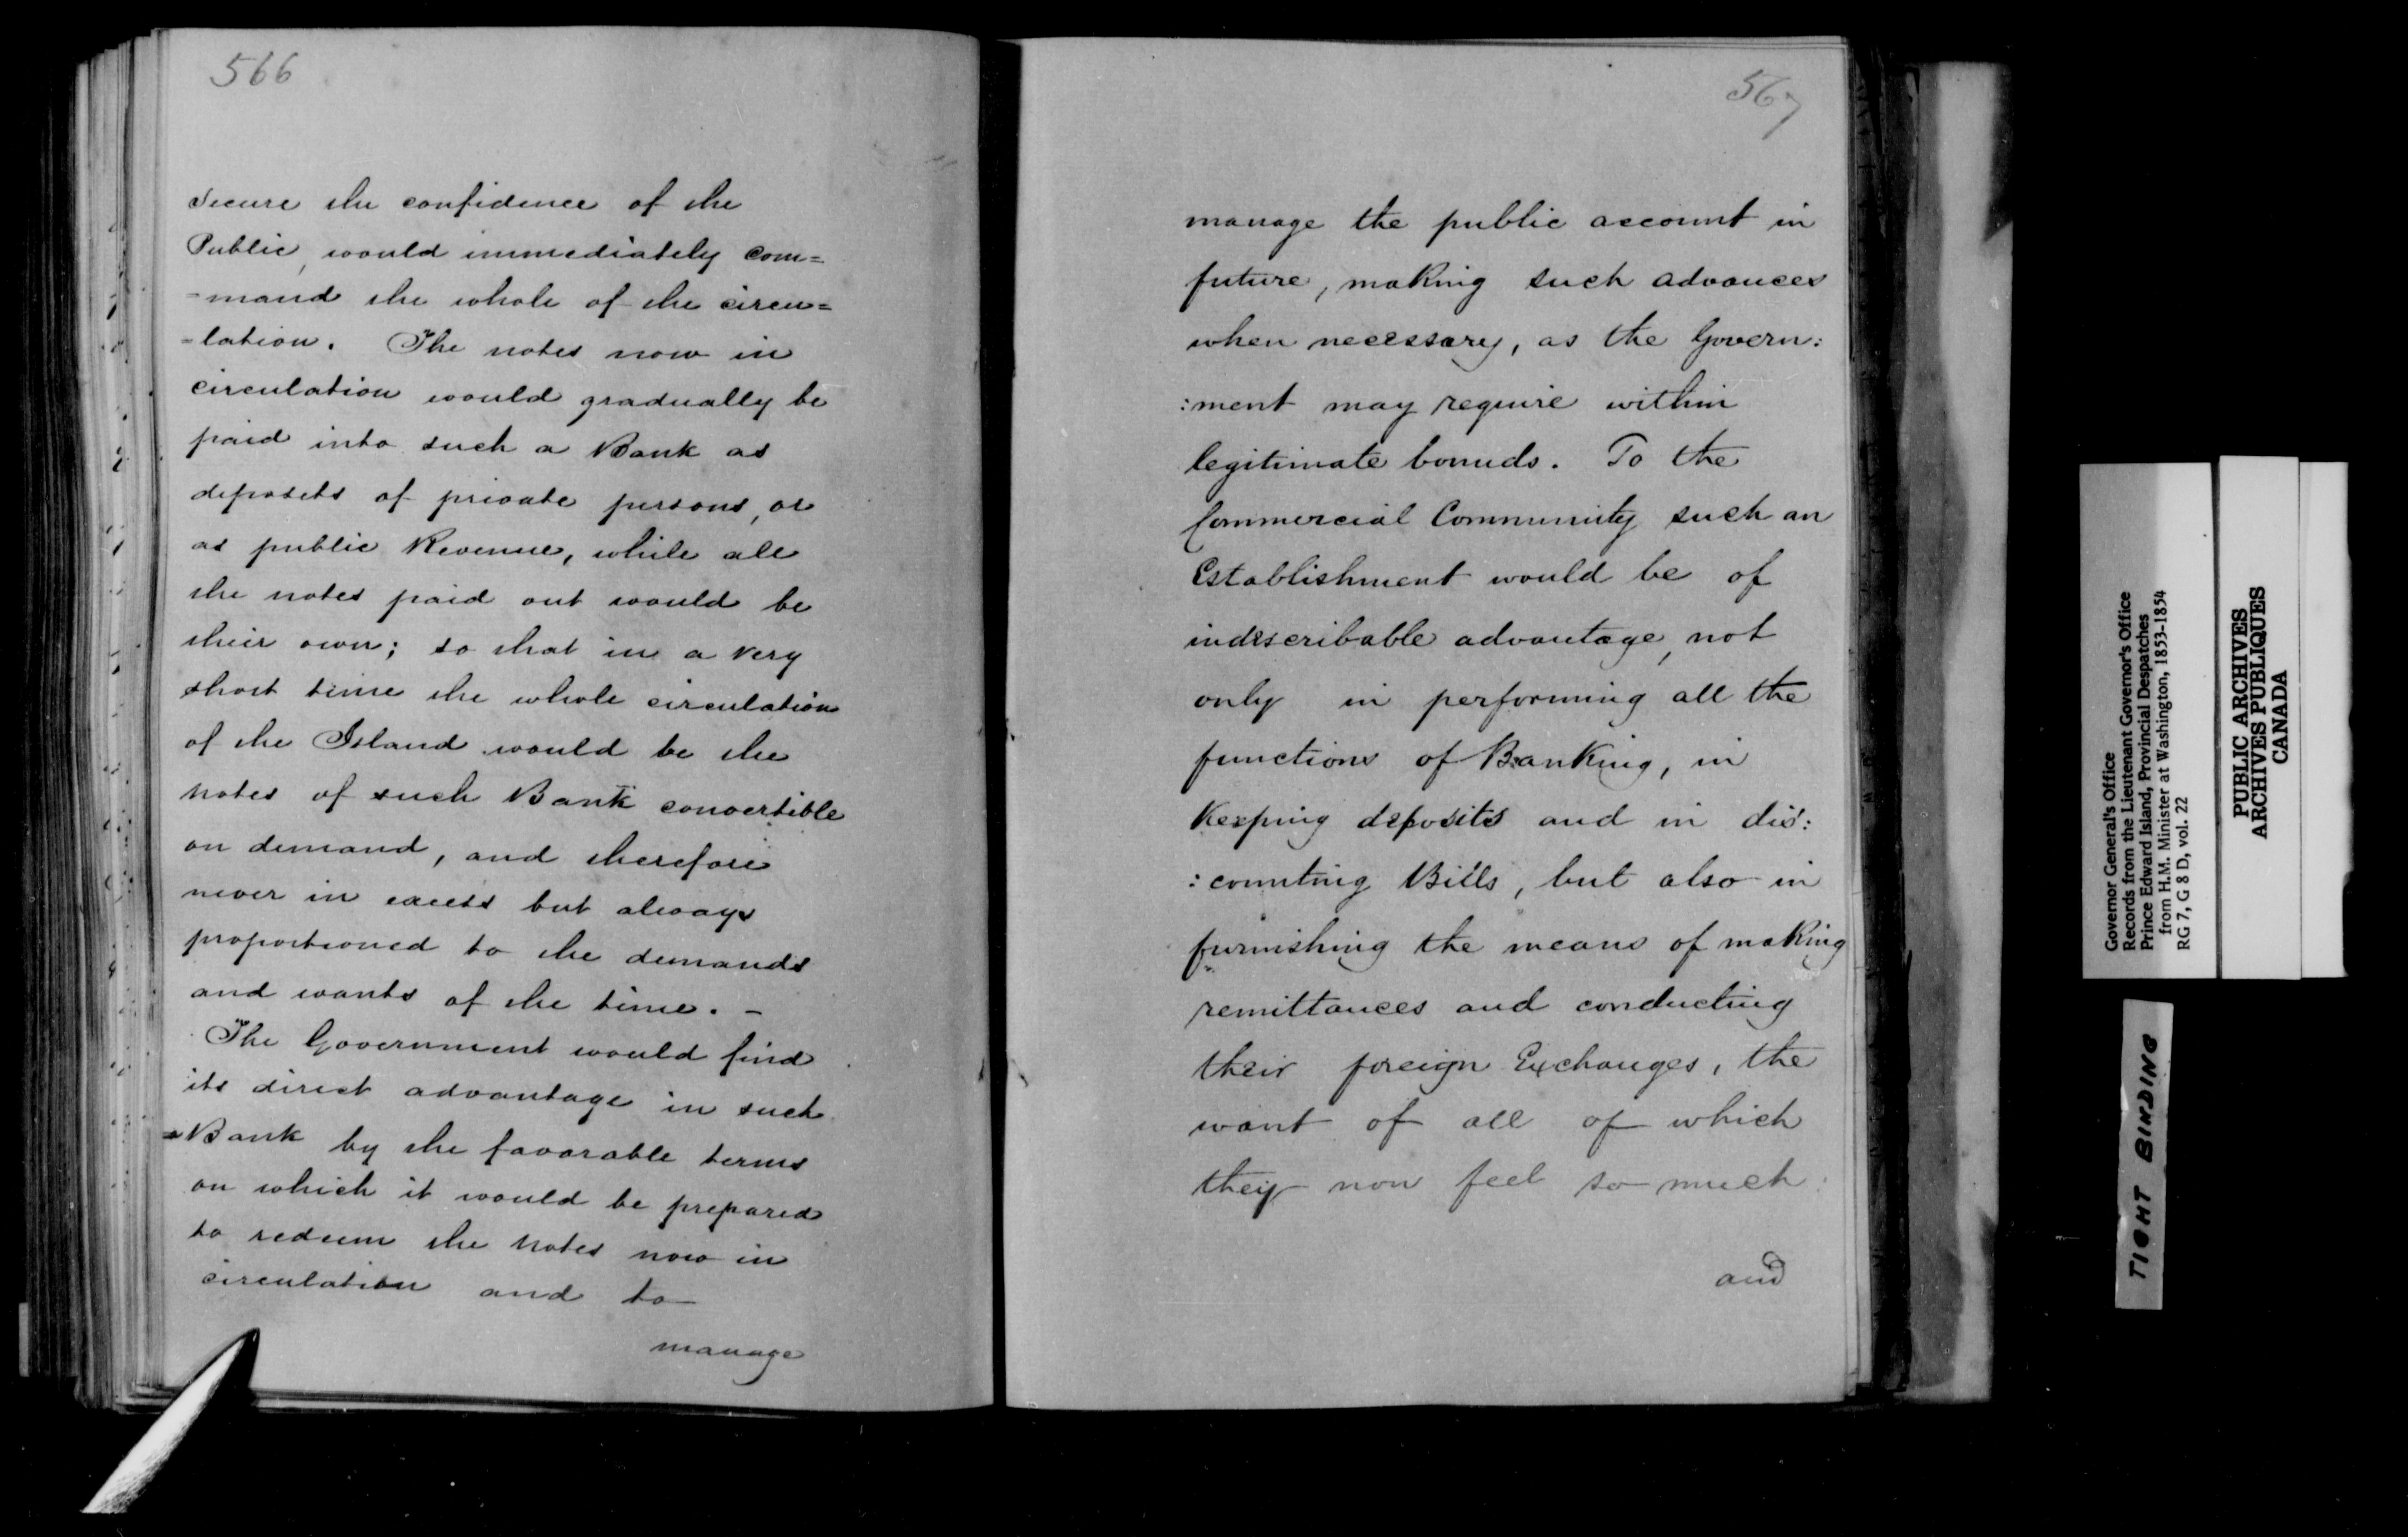 566
secure the confidence of the
Public, would immediately com=
=mand the whole of the circu=
=lation. The notes now in
circulation would gradually be
paid into such a Bank as
deposits of private persons, or
as public Revenue, while all
the notes paid out would be
their own; so that in a very
short time the whole circulation
of the Island would be the
notes of such Bank convertible
on demand, and therefore
never in excess but always
proportioned to the demands
and wants of the time. -
The Government would find
its direct advantage in such
a Bank by the favorable terms
on which it would be prepared
to redeem the notes now in
circulation and to
manage
567
manage the public account in
future, making such advances
when necessary, as the Govern:
:ment may require within
legitimate bounds. To the
Commercial Community such an
Establishment would be of
indescribable advantage, not
only in performing all the
functions of Banking, in
Keeping deposits and in dis:
:counting Bills, but also in
furnishing the means of making
remittances and conducting
their foreign Exchanges, the
want of all of which
they now feel so much
and
Governor General's Office
Records from the Lieutenant Governor's Office
Prince Edward Island, Provincial Despatches
from H.M. Minister at Washington, 1853-1854
RG 7, G 8 D, vol. 22
PUBLIC ARCHIVES
ARCHIVES PUBLIQUES
CANADA
TIGHT BINDING